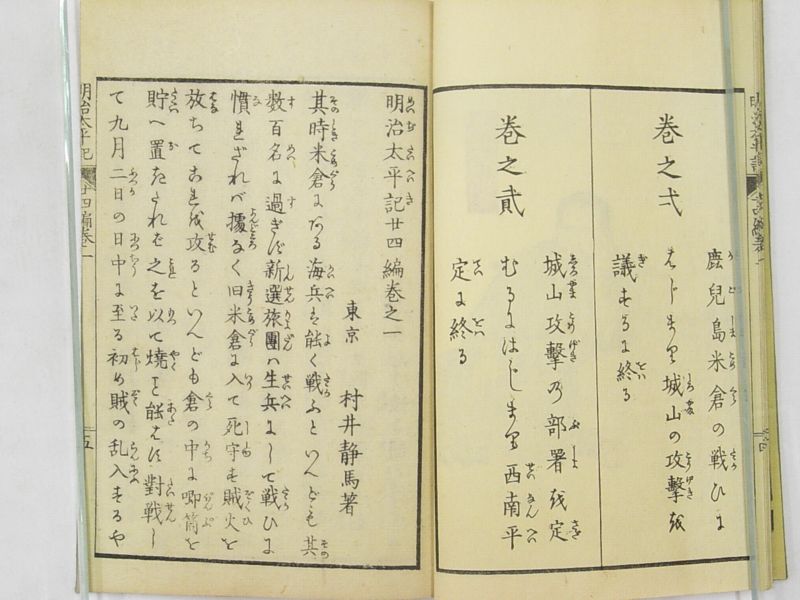 巻之弌
鹿兒島米倉の戦ひに
はじまり城山の攻撃を
議するに終る
巻之貳
城山攻撃の部署を定
むるにはじまり西南平
定に終る
明治太平記廿四編巻之一
東京 村井静馬著
其時米倉にある海兵は能く戦ふといへども其
数百名に過ぎず新選旅團は生兵にして戦ひに
慣れざれば據なく旧米倉に入て死守す賊火を
放ちてこれを攻るといへども倉の中に喞筒を
貯へ置たれば之を以て焼を能はず對戦し
て九月二日の日中に至る初め賊の乱入するや
明治太平記
廿四編巻一
五